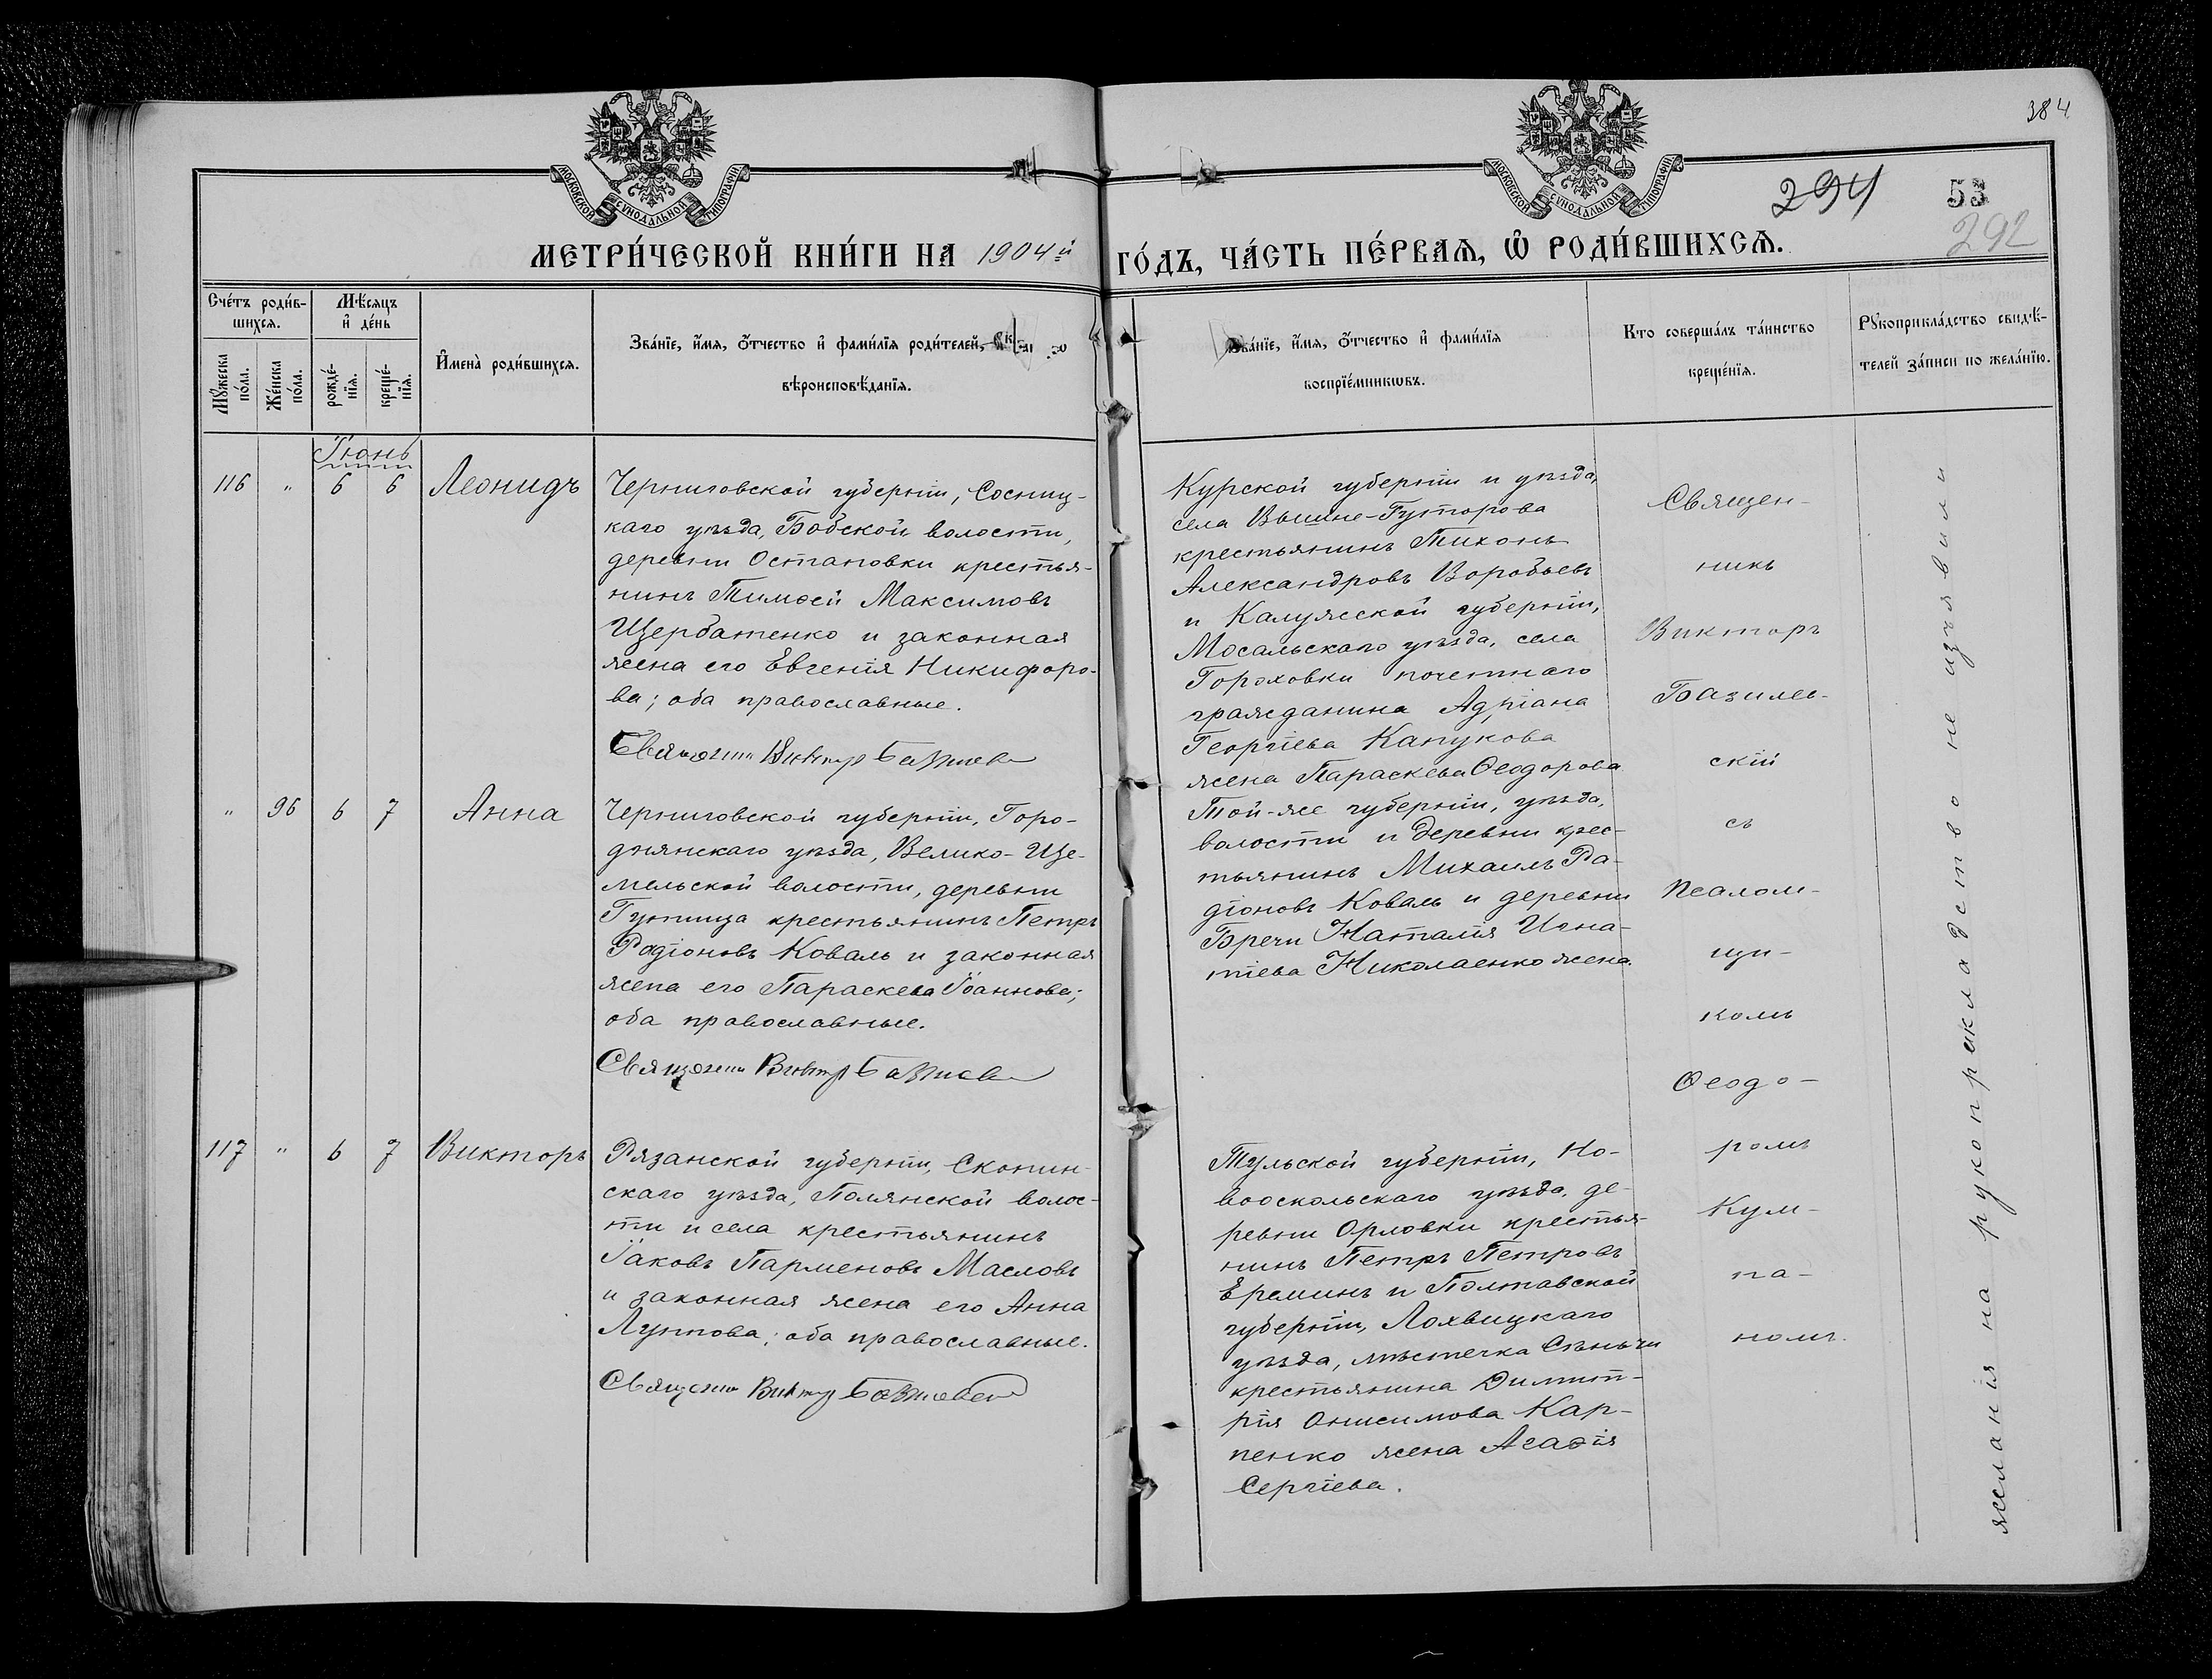 384
294
53
292
МОСКОВСКОЙ СѴНОДАЛЬНОЙ ТИПОГРАФІИ
МОСКОВСКОЙ СѴНОДАЛЬНОЙ ТИПОГРАФІИ
МЕТРИ́ЧЕСКОЙ КНИ́ГИ НА 1904й ГО́ДЪ, ЧА́СТЬ ПЕ́РВАѦ, Ѡ҆ РОДИ́ВШИХСѦ.
Сче́тъ роди́в-
шихсѧ.
Мꙋ́жеска по́ла.
Же́нска по́ла.
Мѣ́сѧцъ
и҆ де́нь
рожде́-нїѧ.
креще́-нїѧ.
И҆мена̀ роди́вшихсѧ.
Зва́нїе, и҆́мѧ, о҆́тчество и҆ фами́лїѧ роди́телей,
вѣроисповѣ́данїѧ.
Зва́нїе, и҆́мѧ, о҆́тчество и҆ фами́лїѧ
воспрїе́мникѡвъ.
Кто соверша́лъ та́инство
креще́нїѧ.
Рꙋкоприкла́дство свидѣ́-
телей за́писи по жела́нїю.
Іюнь
116 " 6 6 Леонидъ
Черниговской губерніи, Сосниц-
каго уѣзда, Бобской волости,
деревни Остановки крестья-
нинъ Тимоѳей Максимовъ
Щербатенко и законная
жена его Евгенія Никифоро-
ва; оба православные.
Священ Виктор Базилев
Курской губерніи и уѣзда,
села Вышне-Гуторова
крестьянинъ Тихонъ
Александровъ Воробьевъ
и Калужской губерніи,
Мосальскаго уѣзда, села
Гороховки почетнаго
гражданина Адріана
Георгіева Канукова
жена Параскева Ѳеодорова
" 96 6 7 Анна
Черниговской губерніи, Горо-
днянскаго уѣзда, Велико-Ще-
мельской волости, деревни
Гутища крестьянинъ Петръ
Радіоновъ Коваль и законная
жена его Параскева Іоаннова;
оба православные.
Священ Виктор Базилев
Той-же губерніи, уѣзда,
волости и деревни крес-
тьянинъ Михаилъ Ра-
діоновъ Коваль и деревни
Бречи Наталія Игна-
тіева Николаенко жена.
117 " 6 7 Викторъ
Рязанской губерніи, Скопин-
скаго уѣзда, Полянской волос-
ти и села крестьянинъ
Іаковъ Парменовъ Масловъ
и законная жена его Анна
Луппова; оба православные.
Священ Виктор Базилевск
Тульской губерніи, Но-
вооскольскаго уѣзда, де-
ревни Орловки крестья-
нинъ Петръ Петровъ
Ереминъ и Полтавской
губерніи, Лохвицкаго
уѣзда, мѣстечка Сѣнчи
крестьянина Димит-
рія Онисимова Кар-
пенко жена Агаѳія
Сергіева.
Священ-
никъ
Викторъ
Базилев-
скій
съ
псалом-
щи-
комъ
Ѳеодо-
ромъ
Кум-
па-
номъ.
желанія на рукоприкладство не изъявили